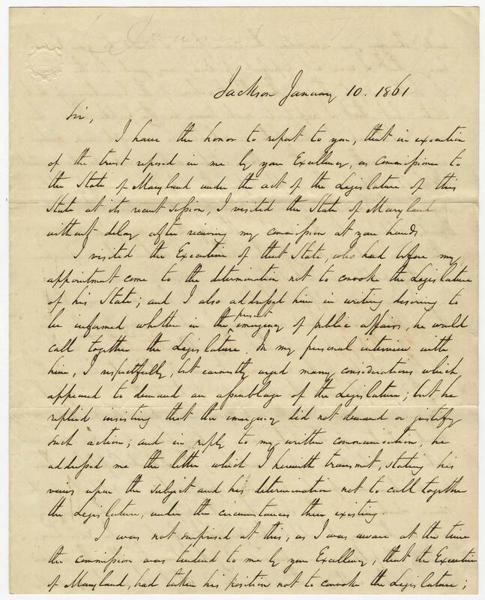 Jackson January 10. 1861
Sir,
I have the honor to report to you, that in execution
of the trust reposed in me by your Excellency, as Commissioner to
the State of Maryland under the act of the Legislature of this
State at its recent session, I visited the State of Maryland
without delay after receiving my commission at your hands
I visited the Executive of that State, who had before my
appointment come to the determination not to convoke the Legislature
of his State; and I also addressed him in writing desiring to
be informed whether in the present emergency of public affairs, he would
call together the Legislature. In my personal interview with
him, I respectfully, but earnestly urged many considerations which
appeared to demand an assemblage of the Legislature; but he
replied insisting that the emergency did not demand or justify
such action; and in reply to my written communication, he
addressed me the letter which I herewith transmit, stating his
views upon the subject and his determination not to call together
the Legislature, under the circumstances then existing.
I was not surprised at this, as I was aware at the time
the commission was tendered to me by your Excellency, that the Executive
of Maryland, had taken his position not to convoke the Legislature;